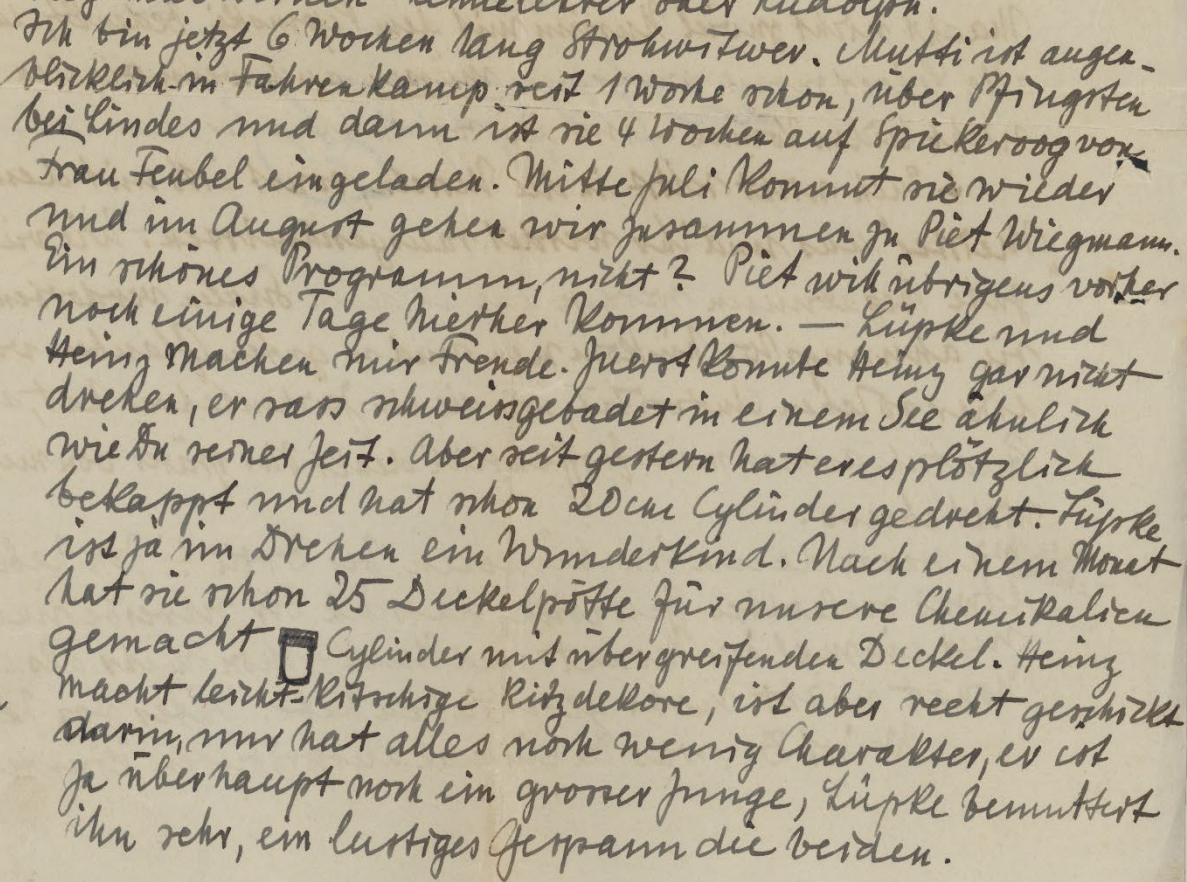 oder Rudolph.
Ich bin jetzt 6 Wochen lang Strohwitwer. Mutti ist augen-
blicklich in Fahrenkamp seit 1 Woche schon, über Pfingsten
bei Lindes und dann ist sie 4 Wochen auf Spiekeroog von
Frau Feubel eingeladen. Mitte Juli kommt sie wieder
und im August gehen wir zusammen zu Piet Wiegmann.
Ein schönes Programm, nicht? Piet will übrigens vorher
noch einige Tage hierher kommen. — Lüpke und
Heinz machen mir Freude. Zuerst konnte Heinz gar nicht
drehen, er sass schweissgebadet in einem See ähnlich
wie Du seiner Zeit. Aber seit gestern hat er es plötzlich
bekappt und hat schon 20cm Cylinder gedreht. Lüpke
ist ja im Drehen ein Wunderkind. Nach einem Monat
hat sie schon 25 Deckelpötte für unsere Chemikalien
gemacht Cylinder mit übergreifenden Deckel. Heinz
macht leicht-kitschige Ritzdekore, ist aber recht geschickt
darin, nur hat alles noch wenig Charakter, er ist
ja überhaupt noch ein grosser Junge, Lüpke bemuttert
ihn sehr, ein lustiges Gespann die beiden.